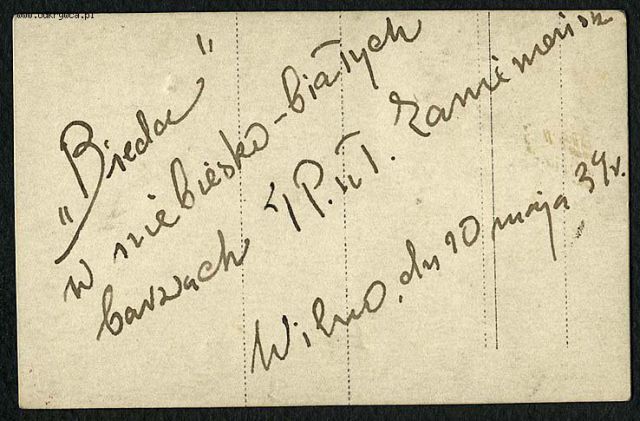 www.odkrywca.pl
„Bieda”
w niebiesko-białych
barwach 4 P. uł. Zaniemeńsk
Wilno, dn 10 maja 34r.